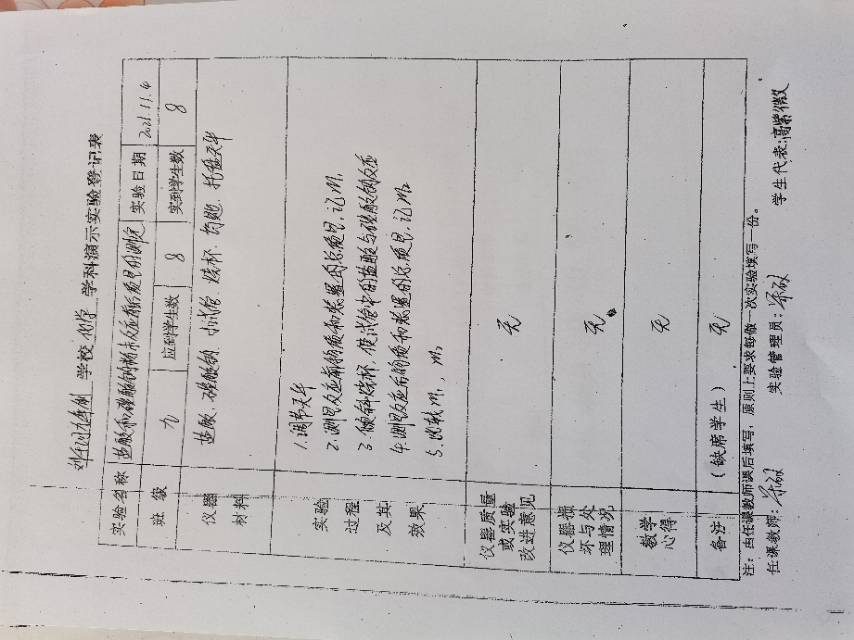 九年制 学校 化学 学科演示实验登记表
实验名称 盐酸和碳酸钠粉末反应前后质量的测定 实验日期 2021.11.4
班级 九 应到学生数 8 实到学生数 8
仪器材料 盐酸、碳酸钠、小试管、烧杯、药匙、托盘天平
实验过程及其效果
1.调节天平
2.测量反应前物质和装置的总质量,记m₁
3.倾斜烧杯,使试管中的盐酸与碳酸钠反应
4.测量反应后物质和装置的总质量,记m₂
5.比较m₁、m₂
仪器质量或实验改进意见 无
仪器损坏与处理情况 无
教学心得 无
备注 (缺席学生) 无
注:由任课教师课后填写,原则上要求每做一次实验填写一份。
任课教师: 实验管理员: 学生代表:高紫微